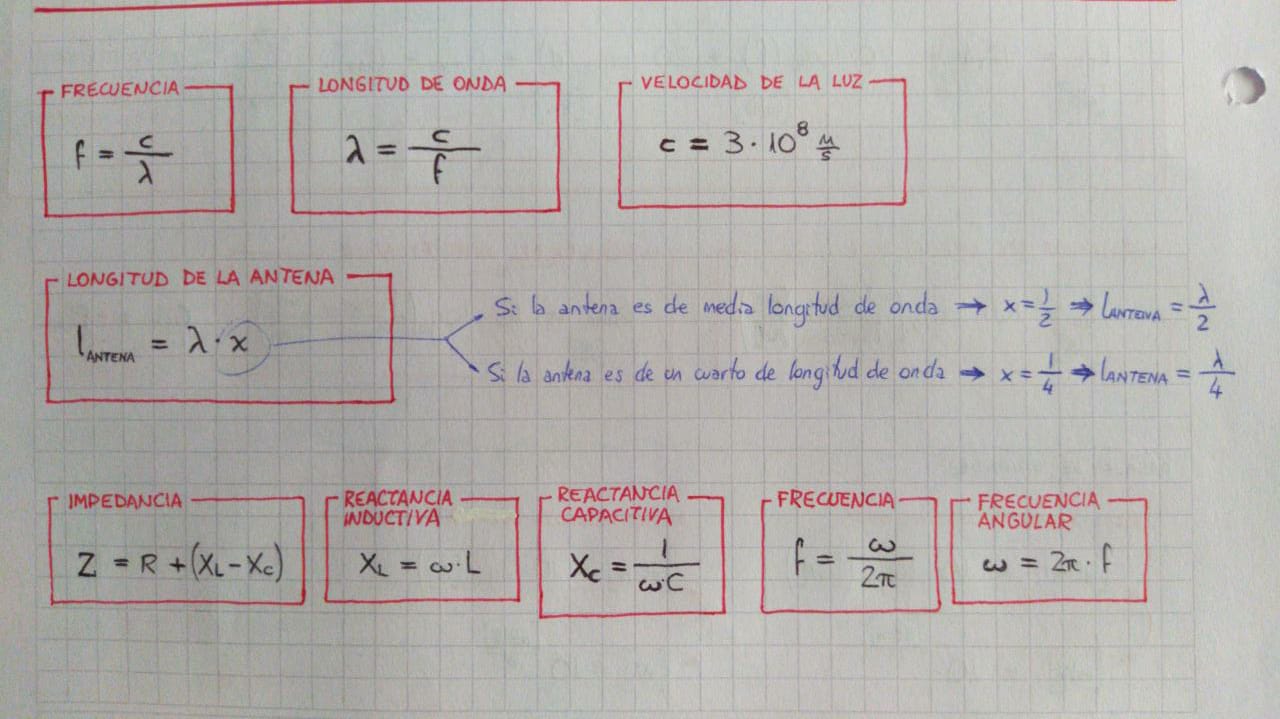 FRECUENCIA
f = c/λ
LONGITUD DE ONDA
λ = c/f
VELOCIDAD DE LA LUZ
c = 3·10⁸ M/S
LONGITUD DE LA ANTENA
l_ANTENA = λ·x
Si la antena es de media longitud de onda → x = 1/2 ⇒ l_ANTENNA = λ/2
Si la antena es de un cuarto de longitud de onda → x = 1/4 ⇒ l_ANTENA = λ/4
IMPEDANCIA
Z = R + (X_L - X_C)
REACTANCIA
INDUCTIVA
X_L = ω·L
REACTANCIA
CAPACITIVA
X_C = 1/ω·C
FRECUENCIA
f = ω/2π
FRECUENCIA
ANGULAR
ω = 2π·f